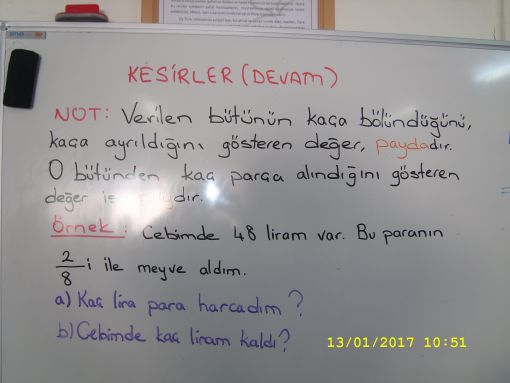 KESİRLER (DEVAM)
NOT: Verilen bütünün kaça bölündüğünü,
kaça ayrıldığını gösteren değer, paydadır.
O bütünden kaç parça alındığını gösteren
değer ise paydır.
Örnek: Cebimde 48 liram var. Bu paranın
2/8 i ile meyve aldım.
a) Kaç lira para harcadım?
b) Cebimde kaç liram kaldı?
13/01/2017 10:51